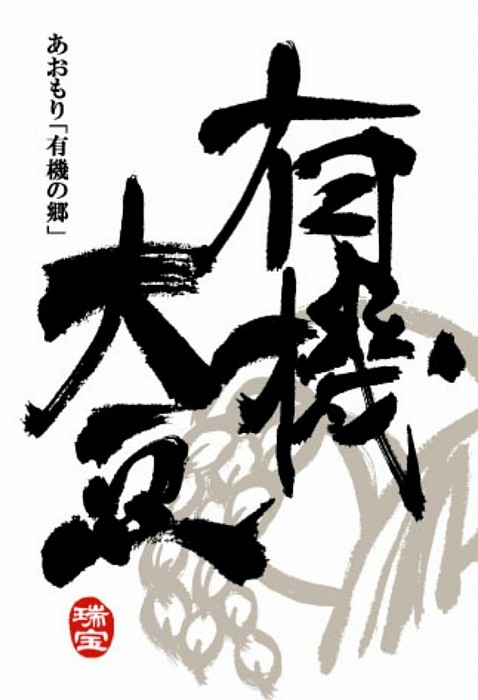 有機
大豆
あおもり「有機の郷」
瑞宝